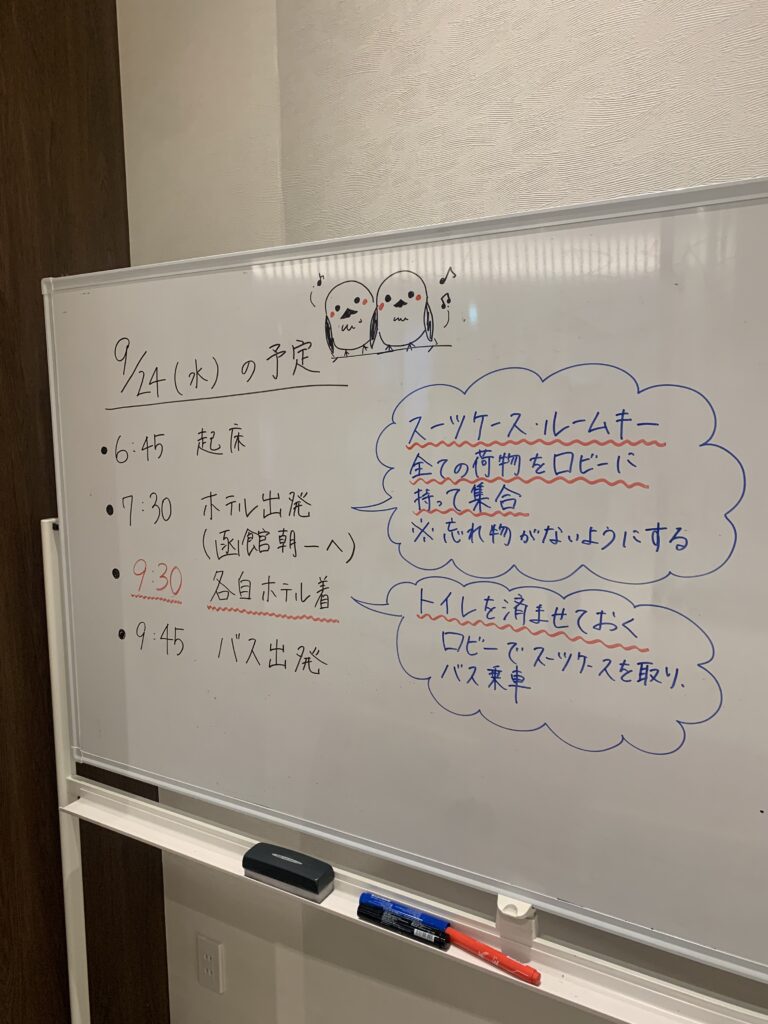 9/24(水)の予定
• 6:45 起床
• 7:30 ホテル出発
(函館朝一へ)
• 9:30 各自ホテル着
• 9:45 バス出発
スーツケース・ルームキー
全ての荷物をロビーに
持って集合
※忘れ物がないようにする
トイレを済ませておく
ロビーでスーツケースを取り、
バス乗車